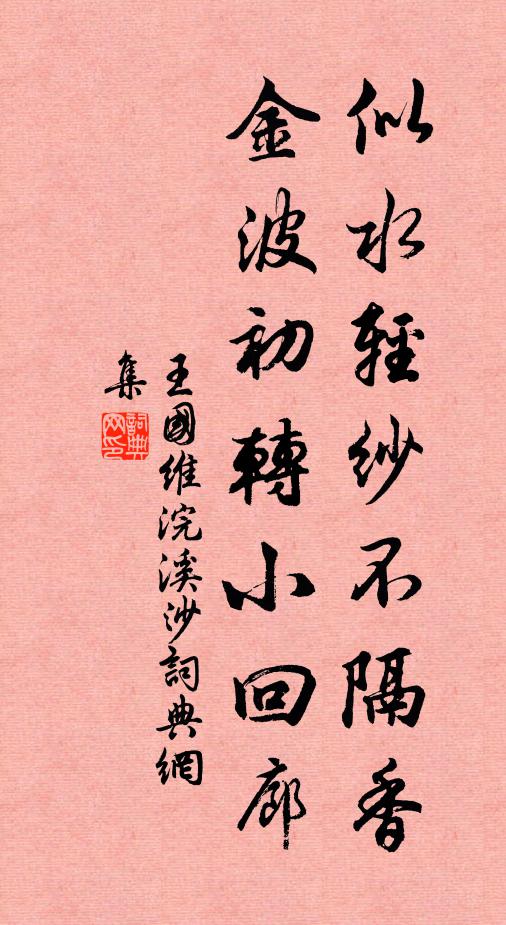 似水輕紗不隔香
金波初轉小回廊
王國維浣溪沙詞典網
集
詞典
网印